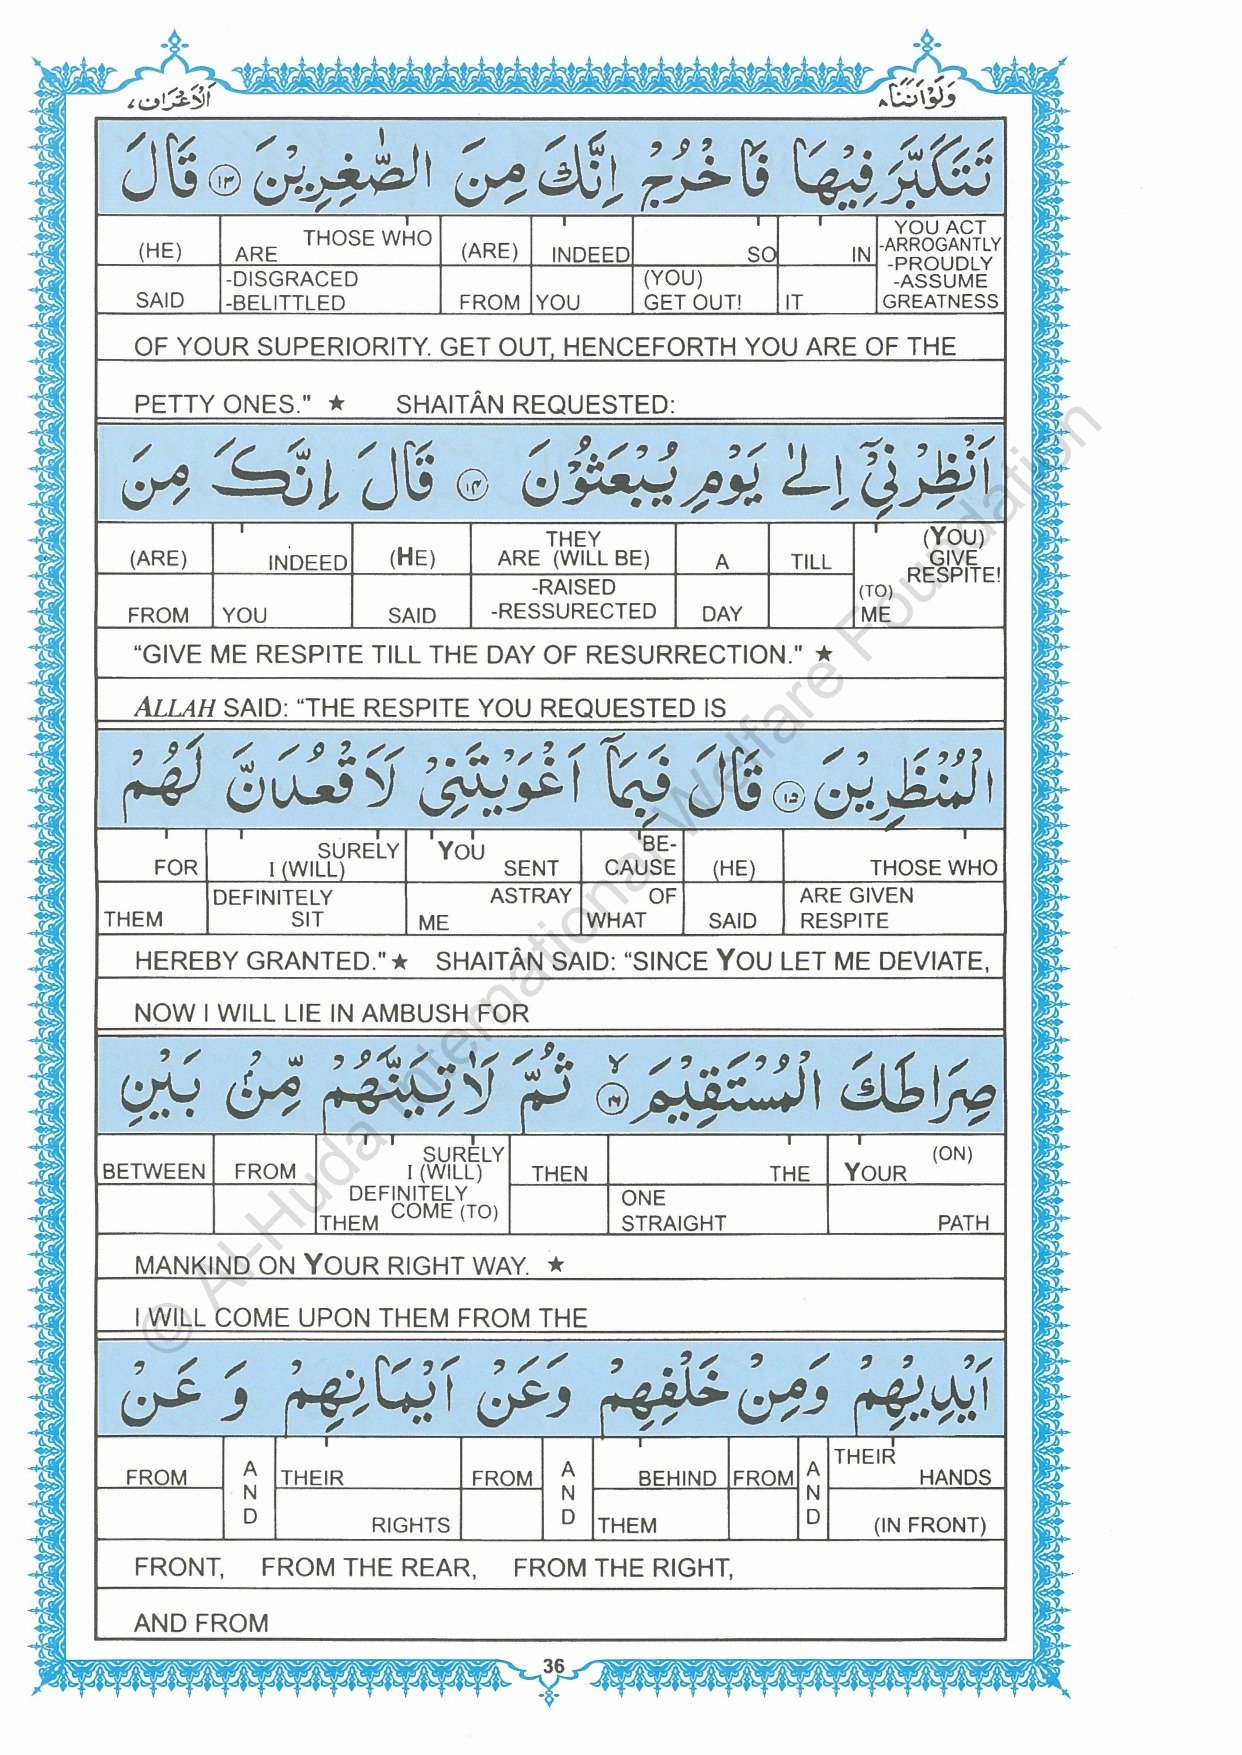 وَلَوْاَنَّنَا ۸
اَلْاَعْرَاف ۷
تَتَكَبَّرَ فِيْهَا فَاخْرُجْ اِنَّكَ مِنَ الصّٰغِرِيْنَ ۝۱۳ قَالَ
(HE) ARE THOSE WHO (ARE) INDEED SO IN YOU ACT
-ARROGANTLY
-DISGRACED (YOU) -PROUDLY
-ASSUME
SAID -BELITTLED FROM YOU GET OUT! IT GREATNESS
OF YOUR SUPERIORITY. GET OUT, HENCEFORTH YOU ARE OF THE
PETTY ONES." ★ SHAITÂN REQUESTED:
اَنْظِرْنِيْٓ اِلٰى يَوْمِ يُبْعَثُوْنَ ۝۱۴ قَالَ اِنَّكَ مِنَ
THEY (YOU)
(ARE) INDEED (HE) ARE (WILL BE) A TILL GIVE
RESPITE!
-RAISED (TO)
FROM YOU SAID -RESSURECTED DAY ME
“GIVE ME RESPITE TILL THE DAY OF RESURRECTION." ★
ALLAH SAID: “THE RESPITE YOU REQUESTED IS
الْمُنْظَرِيْنَ ۝۱۵ قَالَ فَبِمَآ اَغْوَيْتَنِيْ لَاَقْعُدَنَّ لَهُمْ
SURELY YOU BE-
FOR I (WILL) SENT CAUSE (HE) THOSE WHO
DEFINITELY ASTRAY OF ARE GIVEN
THEM SIT ME WHAT SAID RESPITE
HEREBY GRANTED."★ SHAITÂN SAID: “SINCE YOU LET ME DEVIATE,
NOW I WILL LIE IN AMBUSH FOR
صِرَاطَكَ الْمُسْتَقِيْمَ ۝۱۶ۙ ثُمَّ لَاٰتِيَنَّهُمْ مِّنْۢ بَيْنِ
SURELY (ON)
BETWEEN FROM I (WILL) THEN THE YOUR
DEFINITELY ONE
THEM COME (TO) STRAIGHT PATH
MANKIND ON YOUR RIGHT WAY. ★
I WILL COME UPON THEM FROM THE
اَيْدِيْهِمْ وَمِنْ خَلْفِهِمْ وَعَنْ اَيْمَانِهِمْ وَ عَنْ
THEIR
FROM AND THEIR FROM AND BEHIND FROM AND HANDS
RIGHTS THEM (IN FRONT)
FRONT, FROM THE REAR, FROM THE RIGHT,
AND FROM
36
© Al-Huda International Welfare Foundation